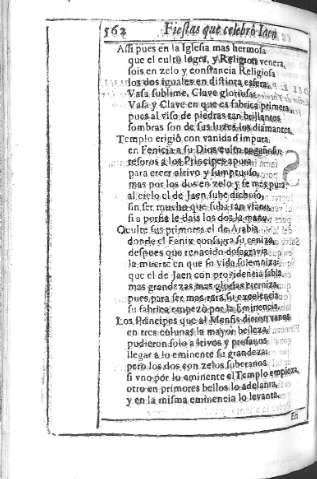 562 Fiestas que celebrò Iaen
Assi pues en la Iglesia mas hermosa
que el culto logra, y Religion venera,
sois en zelo y constancia Religiosa
los dos iguales en distinta esfera,
Vasa sublime, Clave gloriosa
Vasa y Clave en que es fabrica primera,
pues al viso de piedras tan brillantes
sombras son de sus luzes los diamantes.
Templo erigiò con vanidad impura
en Fenicia a su Dios culto
tesoros a los Principes apura
para error altivo y sumptuoso,
mas por los dos en zelo y fe mas pura
al cielo el de Jaen sube dichoso,
sin ser mucho que suba tan vfano,
si a porfia le dais los dos la mano
Oculte sus primores el de Arabia
donde el Fenix consagra su ceniza,
despues que renacido desagravia
la muerte en que su vida solemniza
que el de Jaen con providencia sabia
mas grandezas mas glorias eterniza,
pues para ser mas rara su excelencia
su fabrica empezò por la Eminencia.
Los Principes que al Menfis dieron
en tres colunas la mayor belleza,
pudieron solo altivos y profanos
llegar a lo eminente su grandeza:
pero los dos con zelos soberanos
si vno por lo eminente el Templo empieza,
otro en primores bellos lo adelanta,
y en la misma eminencia lo levanta.
En